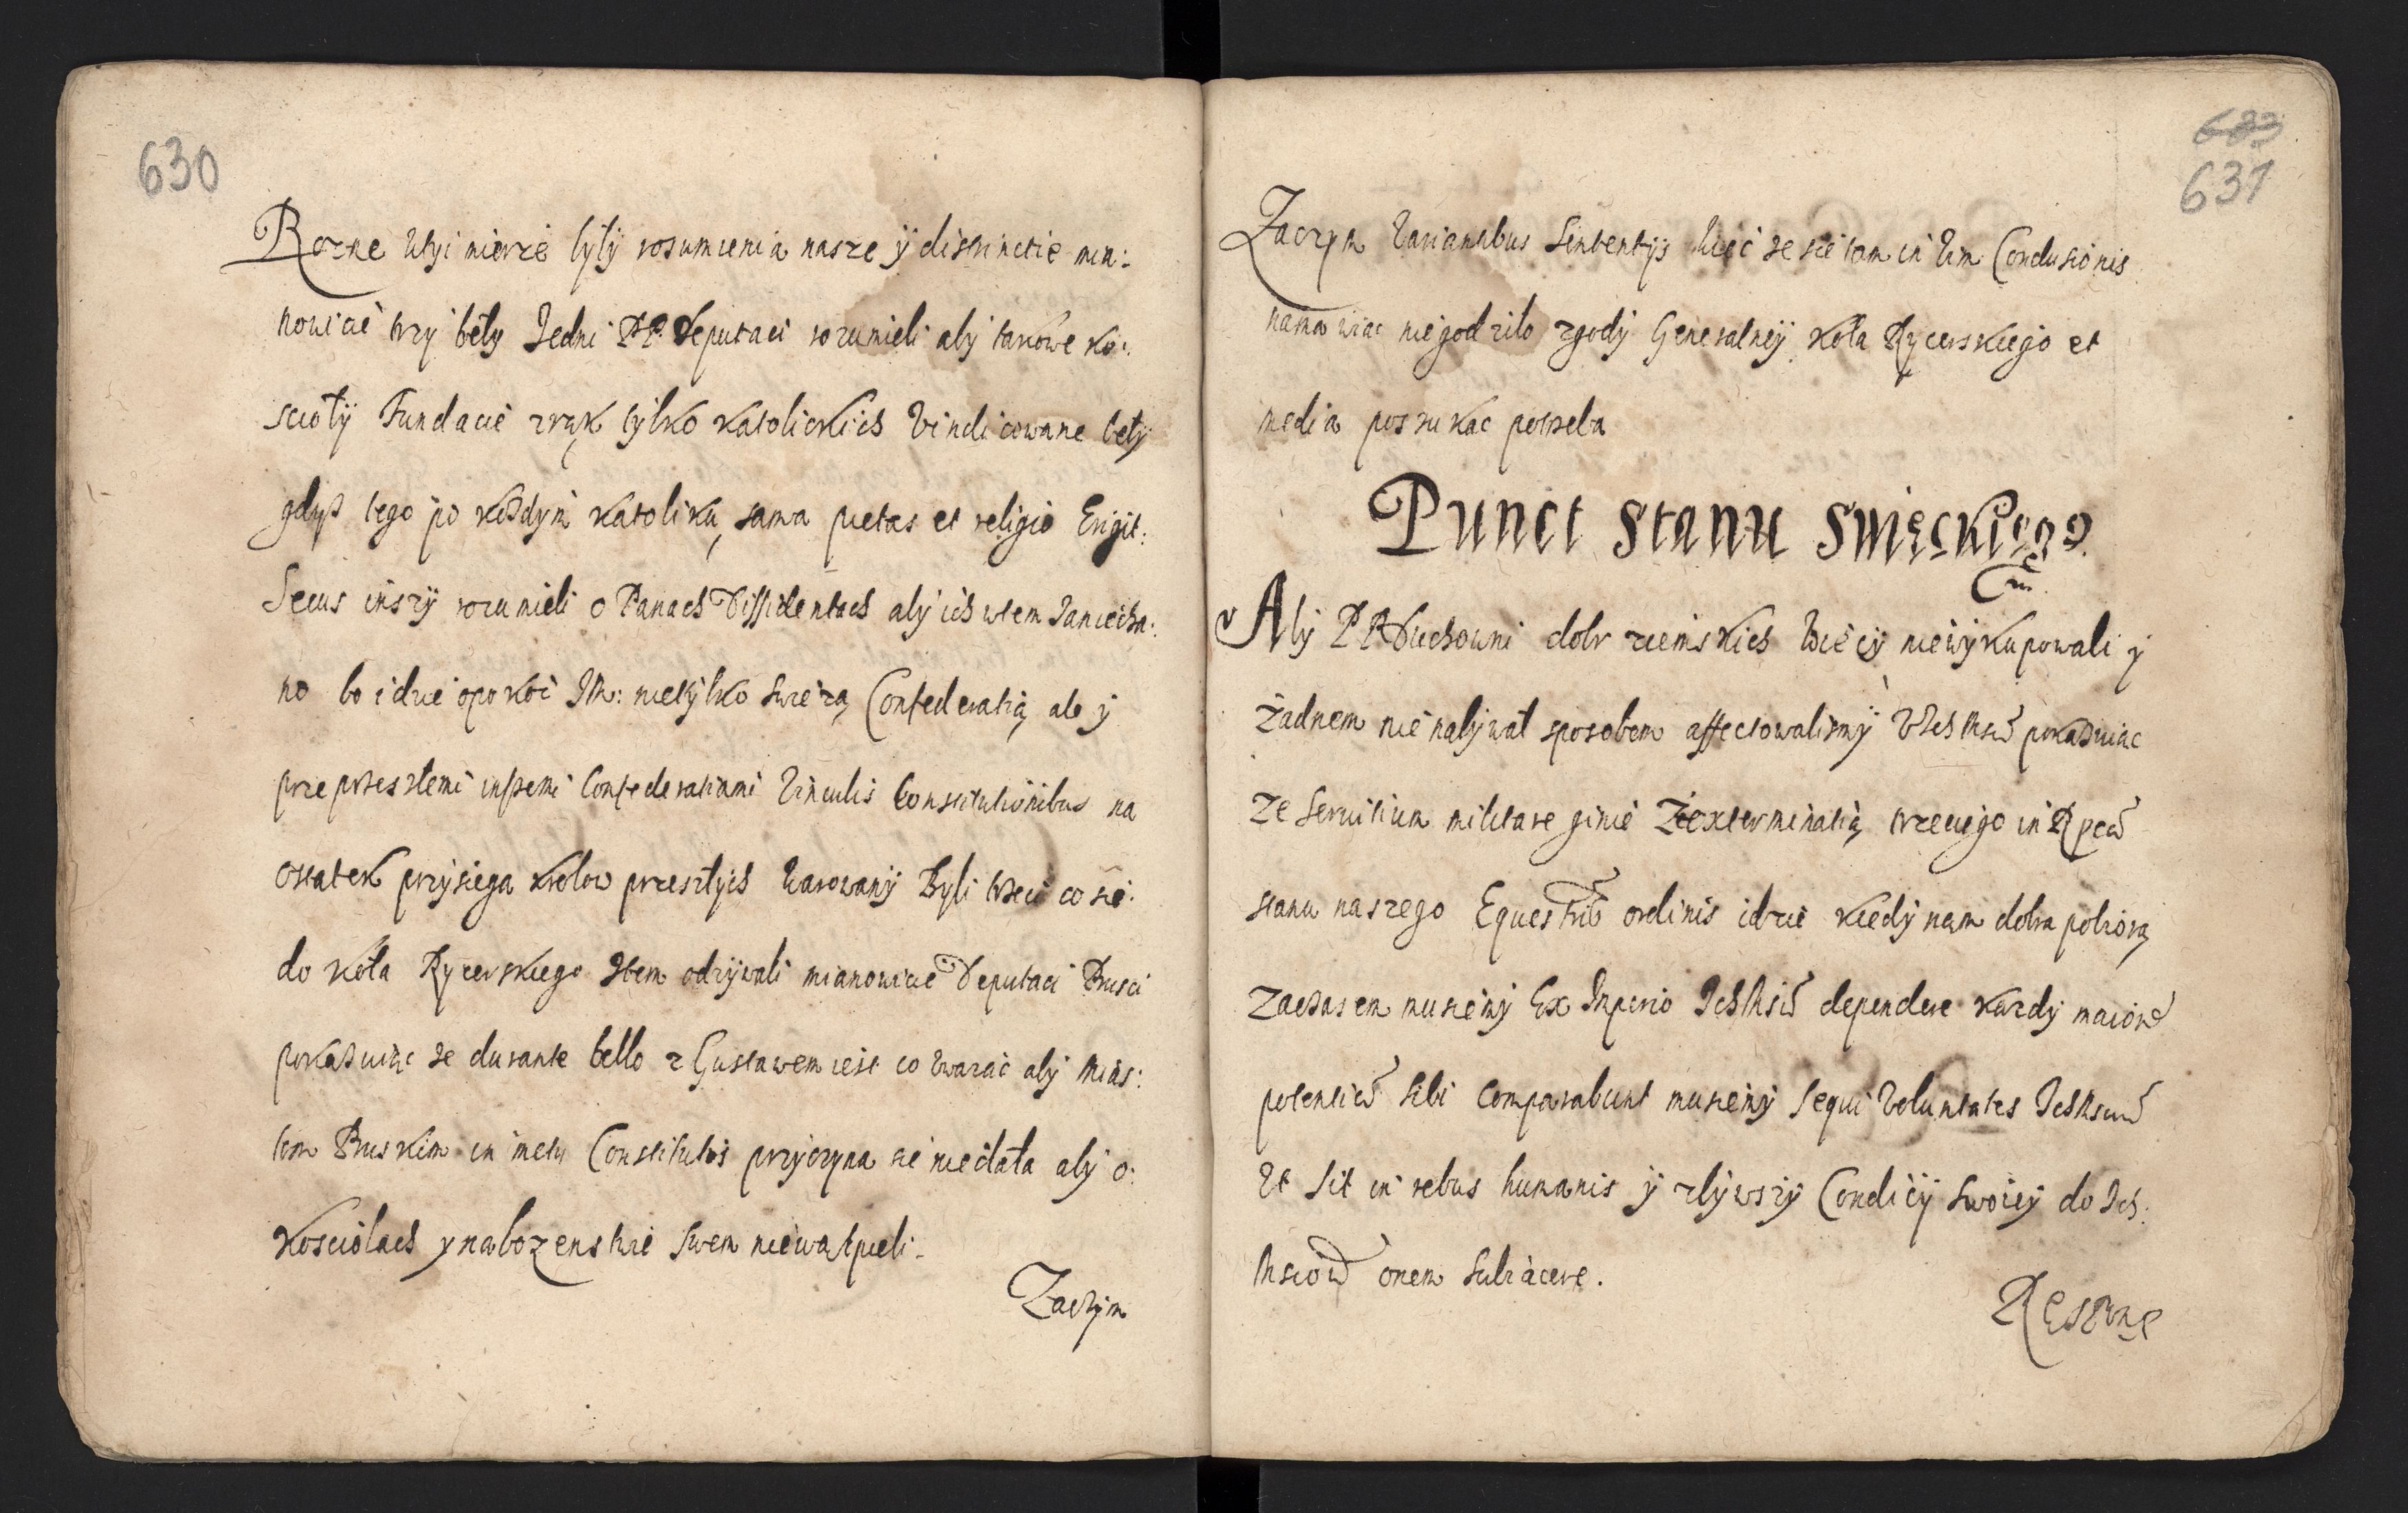 630
Rozne w tyi mierze byly rosumienia nasze ÿ distinctie mia:
nowicie trzy bely Jedni PP. Deputaci rozumieli aby takowe ko:
scioly Fundacie z rąk tylko Katolickich Vindicowane bely
gdyß tego po koßdym Katoliku sama pietas et religio Exigit:
Secus inszÿ rozumieli o Panach Dissidentach aby ich wtem Zaniecha:
no bo idzie o pokoi Jch: nietylko swiezą Confederatią ale ÿ
przeprzeszlemi inßemi Confederatiami Vinculis Constitutionibus na
ostatek przysiega krolow przeszlych warowany Byli trzeci co sie
do kola Rycerskiego Stem odzywali mianowicie Deputaci Prusci
pokaßuiąc ze durante bello z Gustawem iest co uwazać aby Mias:
tom Pruskim in metu Constitutis przyczyna sie niedala aby o:
Kosciolach y nabozenstwie swem niewatpieli.
Zaczym
683
631
Zaczym Variantibus Sententÿs Kiedy ze sie tam in Vim Conclusionis
namawiac niegodzilo zgody Generalnÿ Kola Rycerskiego et
media poszukac potrzeba
Punct Stanu Swięckiego
Aby PP Duchowni dobr ziemskich wiecÿ niewykupowali y
żadnem nie nabywal sposobem affectowalismÿ pokaßuiac
Ze Servitium militare ginie Z exterminatią trzeciego in Rpcę
stanu naszego Equestris ordinis idzie kiedy nam dobra pobiorą
zaczasem musiemy Ex Imperio dependere kazdy maiore
potentiã sibi comparabunt musiemy sequi Voluntates
Et sit in rebus humanis ÿ zbywszÿ Condicÿ Swoieÿ do Ich:
Msciow onem subiacere.